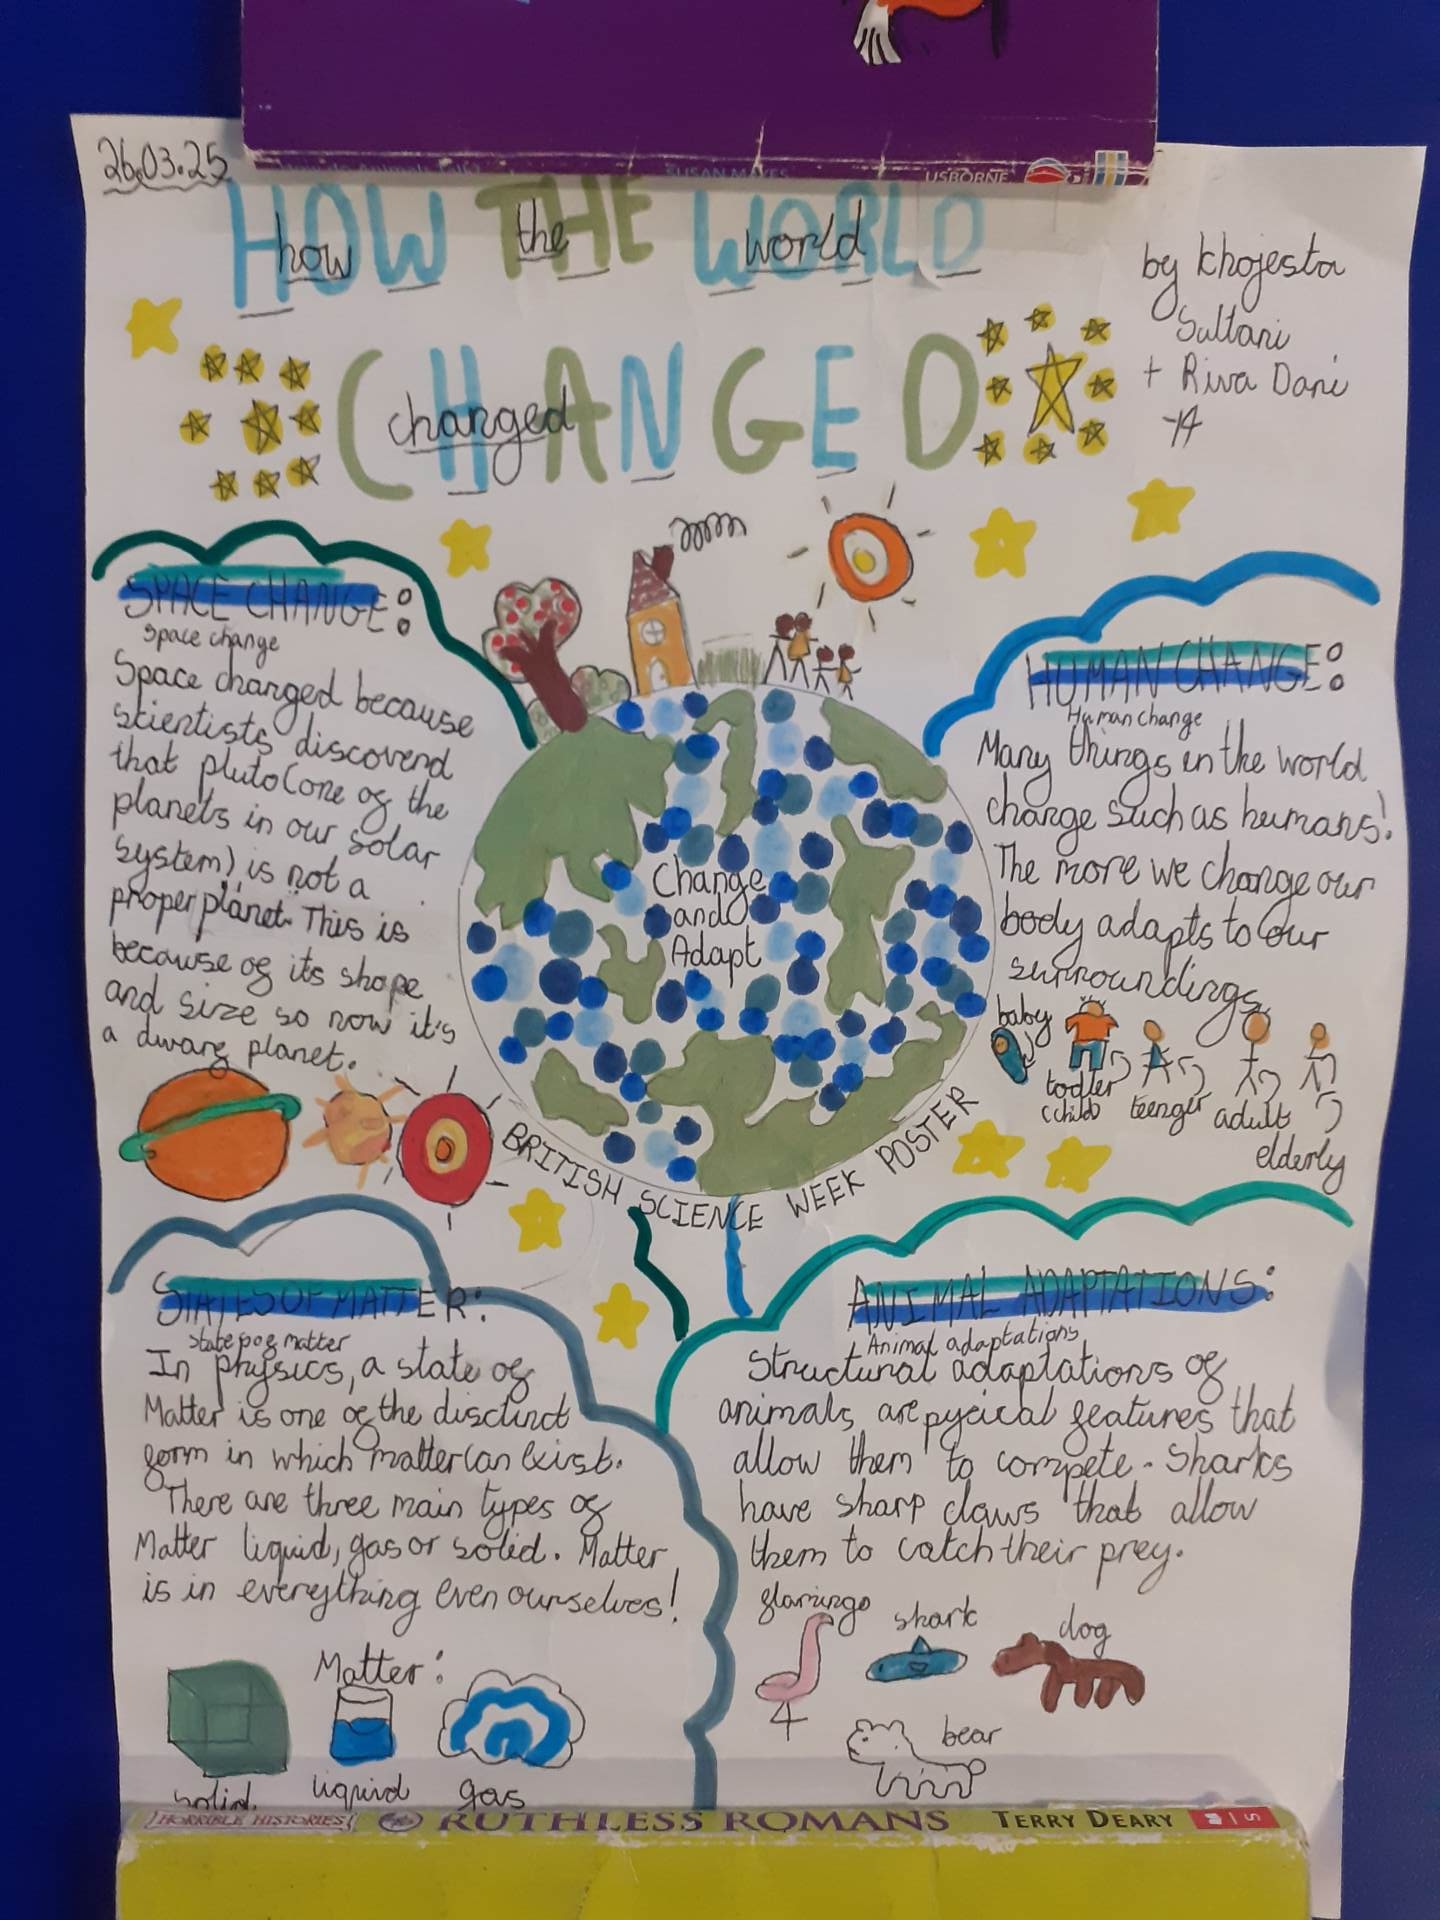 SUSAN MAYES
USBORNE
26.03.25
HOW THE WORLD
how the world
CHANGED
changed
by Khojesta
Sultani
+ Riva Dani
SPACE CHANGE:
Space change
Space changed because
scientists discoverd
that pluto (one of the
planets in our solar
system) is not a
proper planet. This is
because of its shape
and size so now it's
a dwarf planet.
HUMAN CHANGE:
Human change
Many things in the world
change such as humans!
The more we change our
body adapts to our
surroundings
baby
todler
(child)
teenger
adult
elderly
Change
and
Adapt
BRITISH SCIENCE WEEK POSTER
STATES OF MATTER:
In physics, a state of
Matter is one of the disctinct
form in which matter can Exist.
There are three main types of
Matter liquid, gas or solid. Matter
is in everything even ourselves!
Matter:
solid
liquid
gas
ANIMAL ADAPTATIONS:
Animal adaptations
Structural adaptations of
animals, are pycical features that
allow them to compete. Sharks
have sharp claws that allow
them to catch their prey.
flamingo
shark
dog
bear
HORRIBLE HISTORIES
RUTHLESS ROMANS
TERRY DEARY